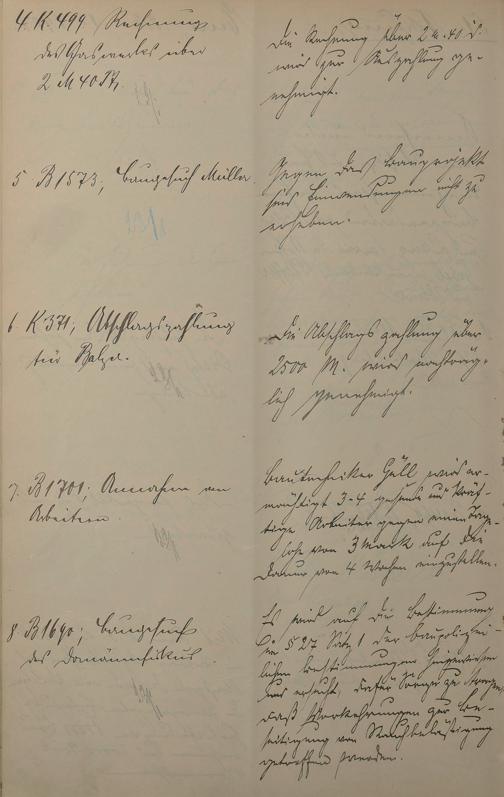 4. K. 499 Rechnung
des Gaswerks über
2 M 40 Pf.
Die Rechnung über 2 M. 40 d.
wird zur Auszahlung ge-
nehmigt.
5 B 1573, Baugesuch Müller.
Gegen das Bauprojekt
sind Einwendungen nicht zu
erheben.
6 K 371; Abschlagszahlung
für Balzer.
Die Abschlagszahlung über
2500 M. wird nachträg-
lich genehmigt.
7. B 1701; Annahme von
Arbeitern.
Bautechniker Göll wird er-
mächtigt 3-4 gesunde und kräf-
tige Arbeiter gegen einen Tage-
lohn von 3 Mark auf die
Dauer von 4 Wochen einzustellen.
8. B 1690; Baugesuch
des Domänenfiskus.
Es wird auf die Bestimmung
in § 27 Satz 1 der baupolizei-
lichen Bestimmungen hingewiesen
und ersucht, dafür Sorge zu tragen,
daß Vorkehrungen zur Be-
seitigung von Rauchbelästigung
getroffen werden.